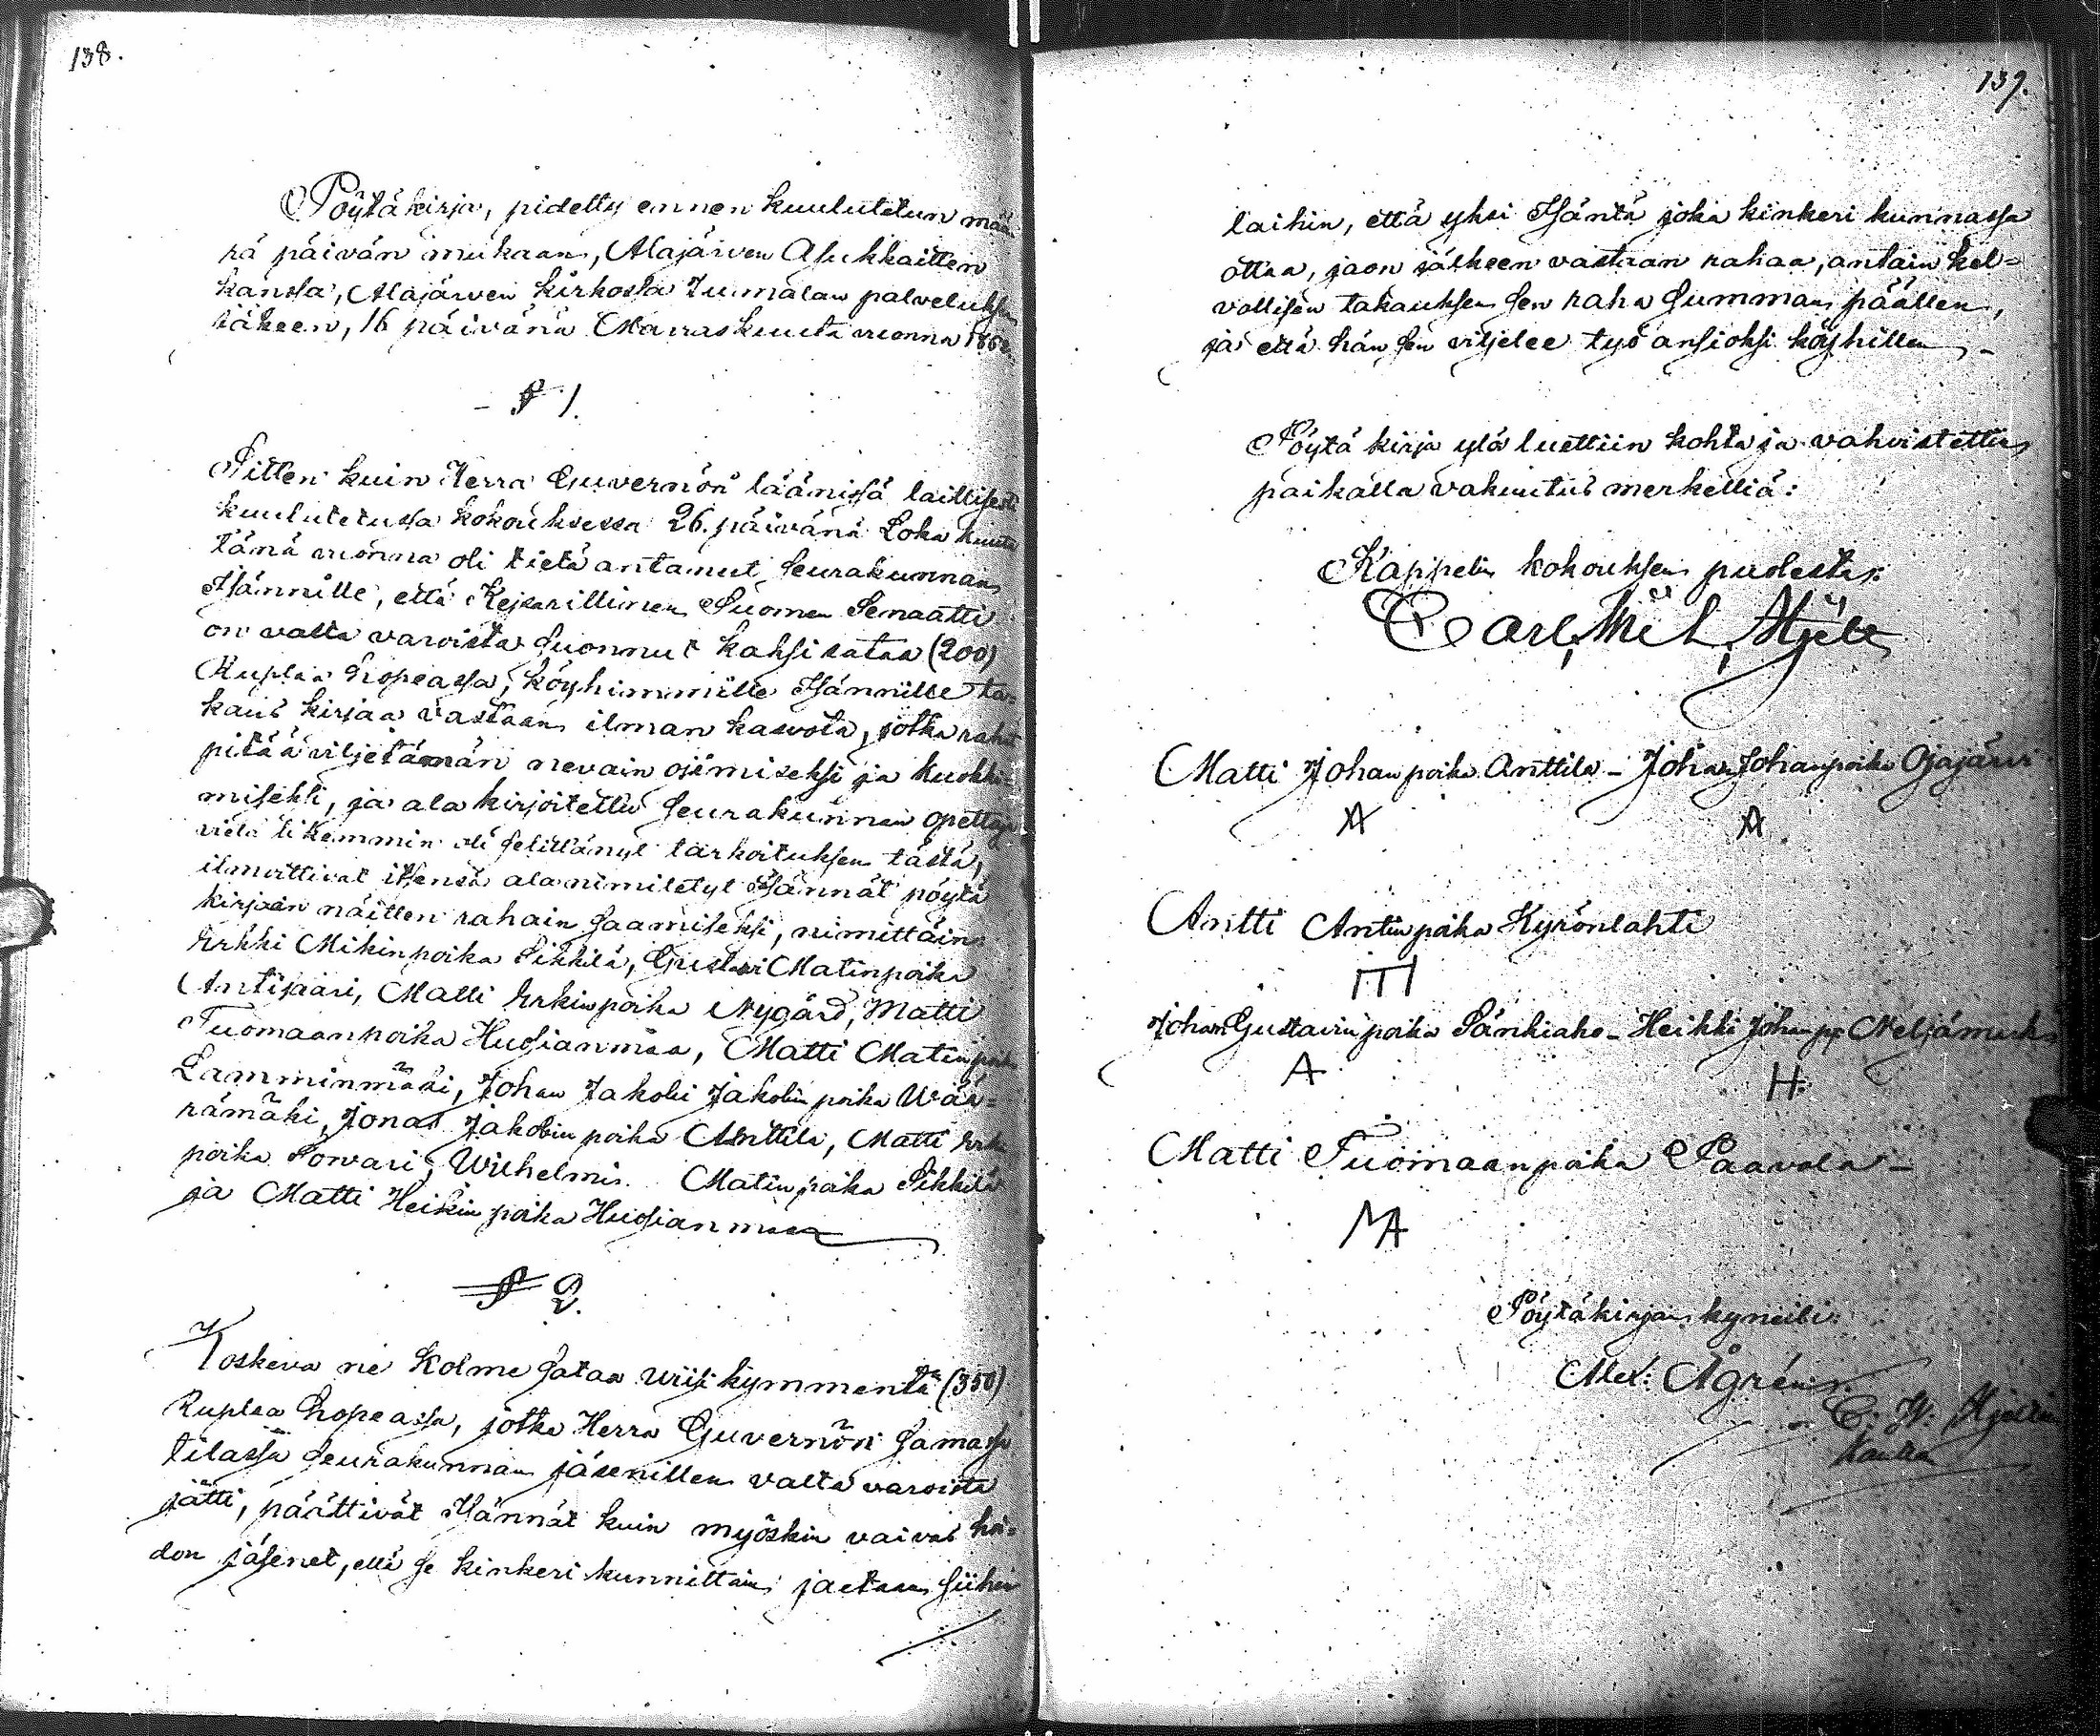 138.
Pöytäkirja, pidetty ennen kuulutetun mää
rä päivän mukaan, Alajärven Asukkaitten
kanssa, Alajärven kirkossa Jumalan palveluksen
jäkeen, 16 päivänä Marraskuuta vuonna 1862.
§ 1.
Sitten kuin Herra Guvernöri läänissä laillisesti
kuulutetussa kokouksessa 26. päivänä Loka kuuta
tänä vuonna oli tietä antanut, seurakunnan
Isännille, että Kejsarillinen Suomen Senaatti
on valta varoista suonnut kaksi sataa (200)
Ruplaa hopeassa, köyhimmille Isännille ta-
kaus kirjaa vastaan ilman kasvota, jotka rahat
pitää viljetämän nevain ojimiseksi ja kuokki-
miseksi, ja ala kirjoitettu seurakunnan opettaja
vielä likemmin oli selittänyt tarkoituksen tästä,
ilmoittivat itsensä alanimitetyt Isännät pöytä
kirjaan näitten rahain saamiseksi, nimittäin
Erkki Mikinpoika Pikkilä, Gustavi Matinpoika
Antisaari, Matti Erkinpoika Nygård, Matti
Tuomaanpoika Huosianmaa, Matti Matinpoika
Lamminmäki, Johan Jakobi Jakobin poika Wää-
rämäki, Jonas Jakobin poika Anttila, Matti Erkin
poika Porvari, Wilhelmi Matin poika Pikkilä
ja Matti Heikin poika Huosianmaa
§ 2.
Koskeva ne Kolme sataa viisi kymmentä (350)
Ruplaa hopeassa, jotka Herra Guvernöri samassa
tilassa seurakunnan jäsenillen valta varoista
jätti, päättivät Isännät kuin myöskin vaivas hoi-
don jäsenet, että se kinkeri kunnittain jaetaan siihen
139.
laihin, että yksi Isäntä joka kinkeri kunnassa
ottaa, jaon jälkeen vastaan rahaa, antain kel-
vollisen takauksen sen raha summan päällen,
ja että hän sen viljelee työ ansioksi köyhillen
Pöytä kirja ylös luettiin kohta ja vahvistettiin
paikalla vakuutus merkelliä:
Kappelin kokouksen puolesta:
Carl Wilh. Hjelt
Matti Johan poika Anttila - Johan Johanpoika Ojajärvi
A A
Antti Antinpoika Kyrönlahti
Johan Gustavin poika Pänkiaho - Heikki Johan p. Neljämarkka
A H
Matti Tuomaanpoika Paavola -
MA
Pöytäkirjan kyneili:
Alex: Ågrén
C. W. Hjeltin
kautta